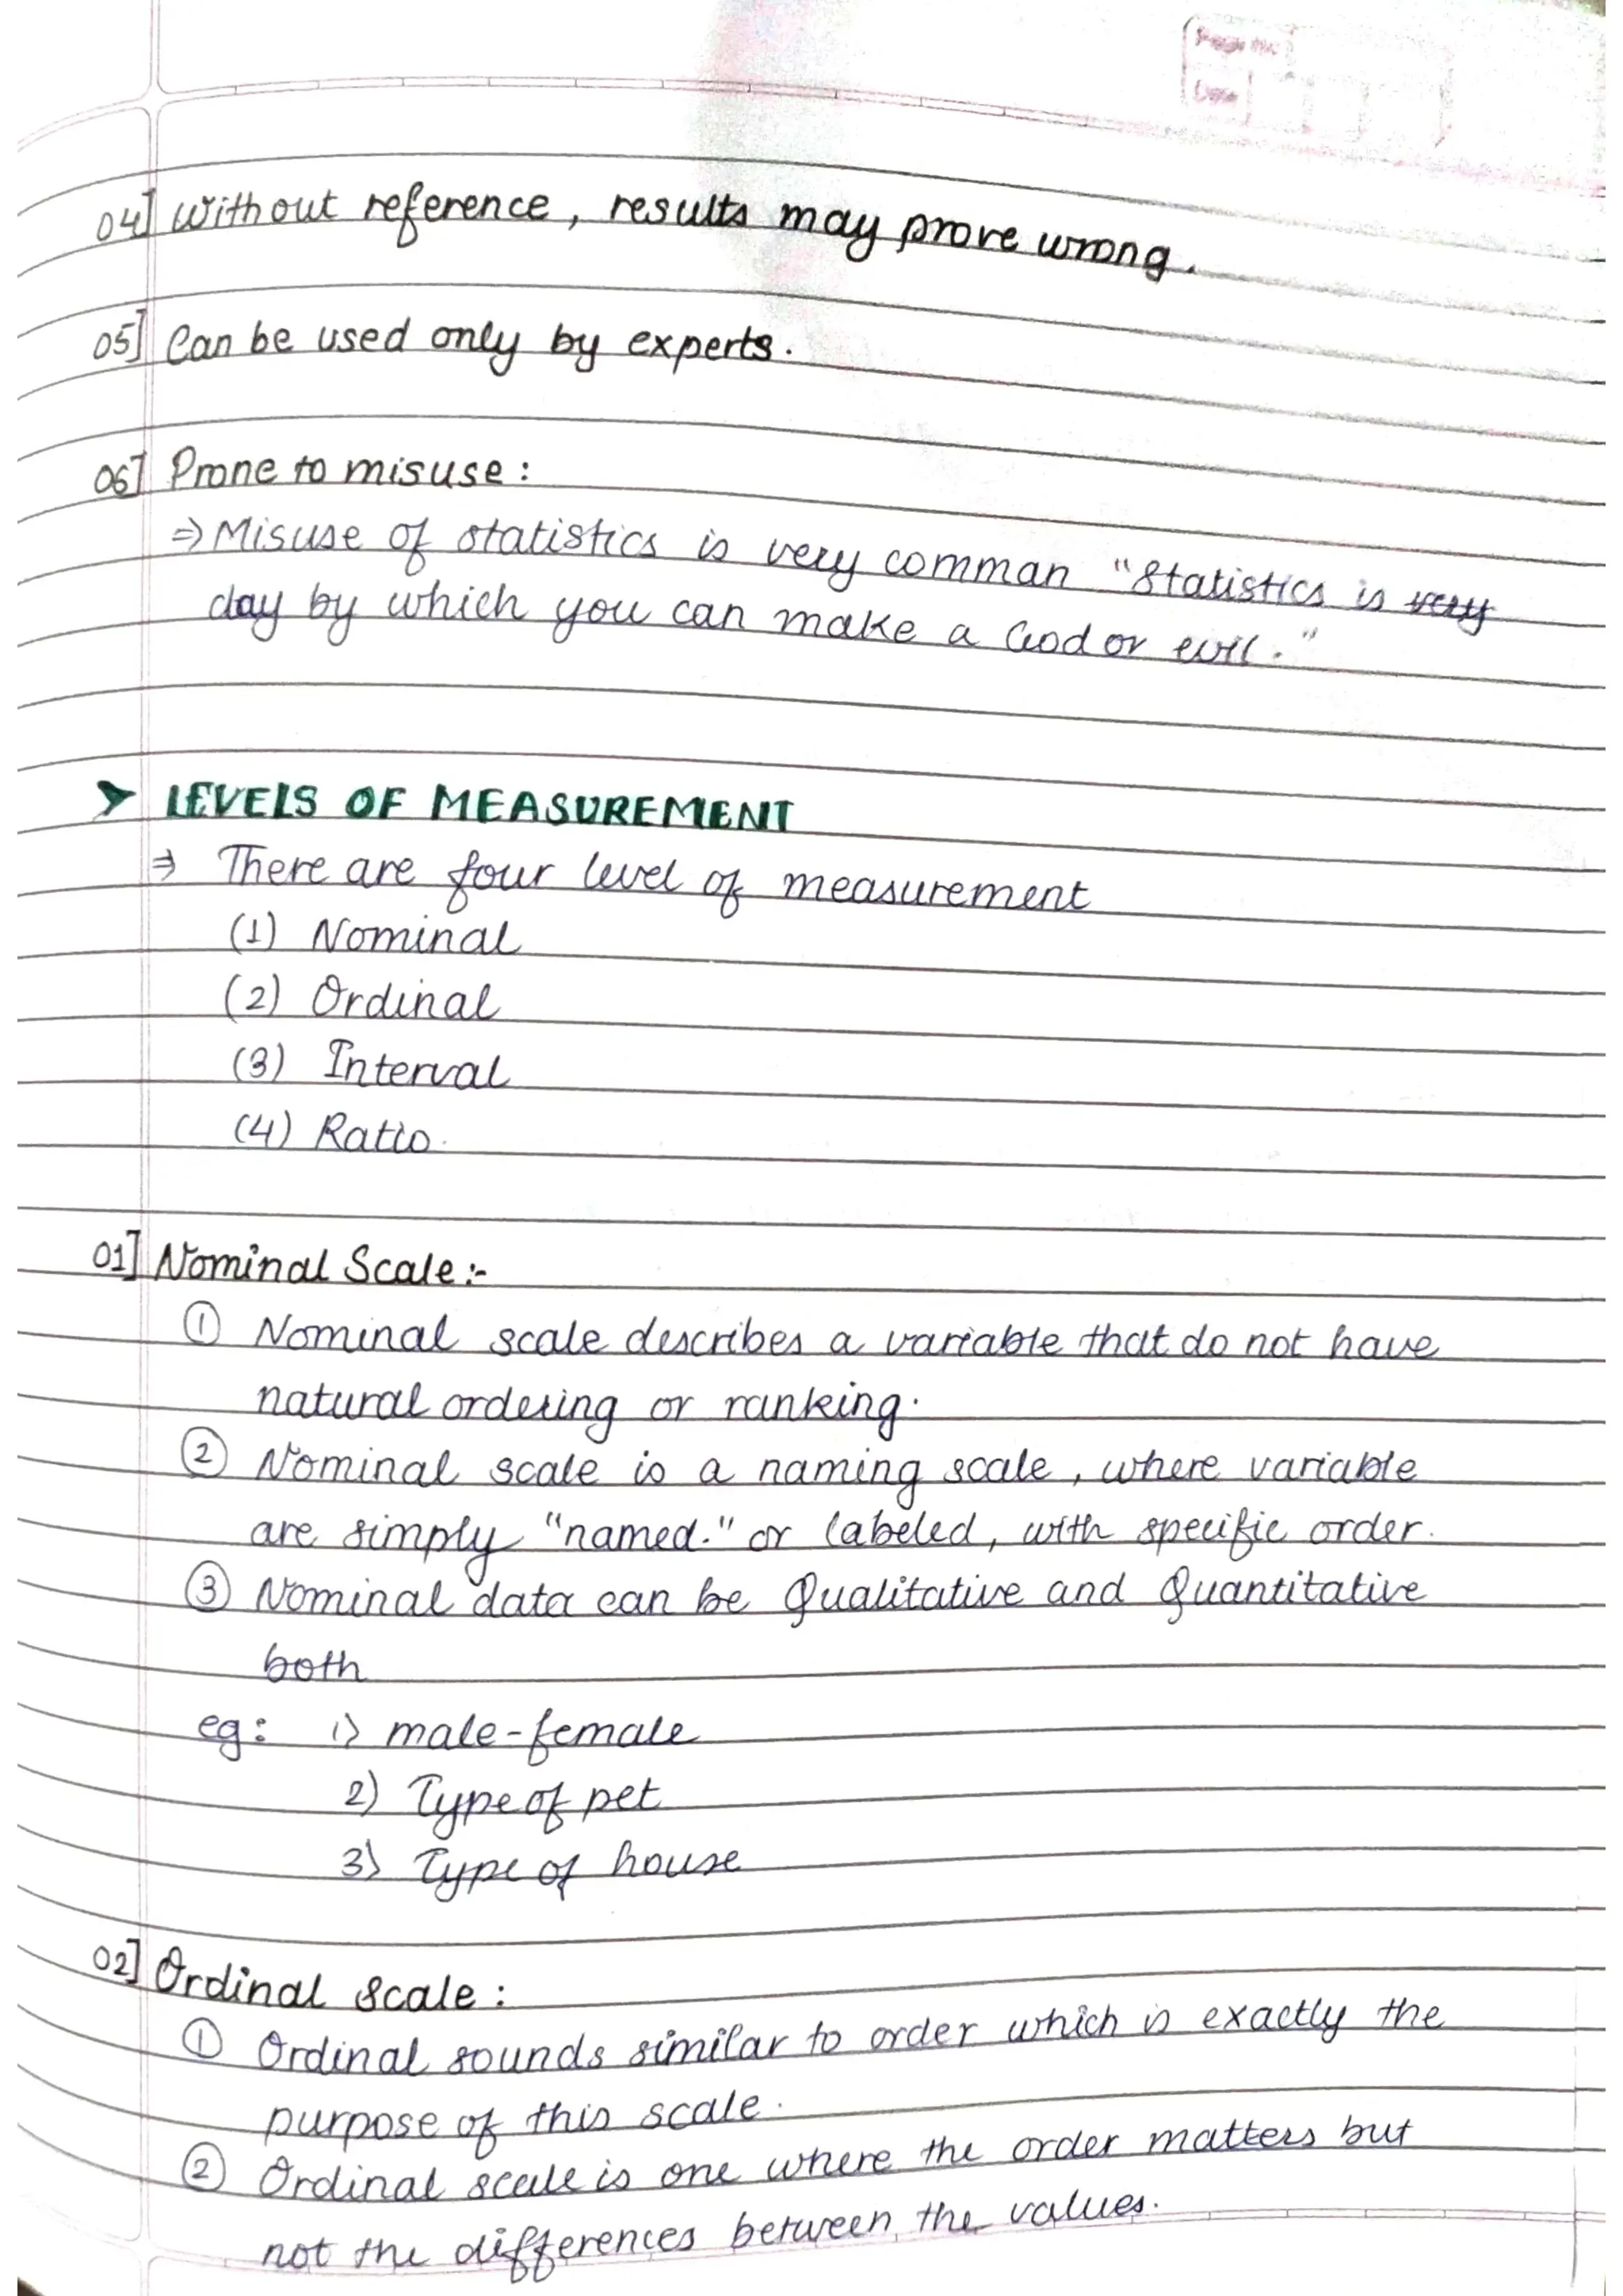 Page No.
Date
04] Without reference, results may prove wrong.
05] Can be used only by experts.
06] Prone to misuse :
⇒ Misuse of statistics is very comman "Statistics is very
day by which you can make a God or evil."
➤ LEVELS OF MEASUREMENT
⇒ There are four level of measurement
(1) Nominal
(2) Ordinal
(3) Interval
(4) Ratio.
01] Nominal Scale :-
① Nominal scale describes a variable that do not have
natural ordering or ranking.
② Nominal scale is a naming scale, where variable
are simply "named." or labeled, with specific order.
③ Nominal data can be Qualitative and Quantitative
both
eg: 1) male-female
2) Type of pet
3) Type of house
02] Ordinal Scale :
① Ordinal sounds similar to order which is exactly the
purpose of this scale.
② Ordinal scale is one where the order matters but
not the differences between the values.